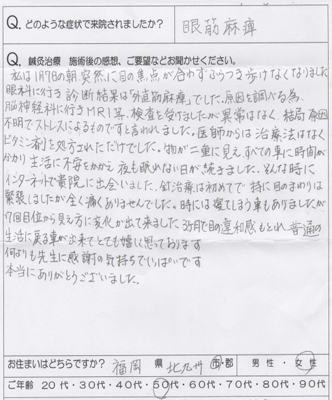 Q.どのような症状で来院されましたか?
眼筋麻痺
Q.鍼灸治療 施術後の感想、ご要望などお聞かせください。
私は1月7日の朝突然に目の焦点が合わずふらつき歩けなくなりました。
眼科に行き診断結果は「外直筋麻痺」でした。原因を調べる為、
脳神経科に行きMRI等、検査を受けましたが異常はなく、結局原因
不明でストレスによるものですと言われました。医師からは治療法はなく
ビタミン剤を処方されただけでした。物が二重に見え、すべての事に時間が
かかり生活に不安をかかえ夜も眠れない日が続きました。そんな時に
インターネットで貴院に出会いました。針治療は初めてで特に目のまわりは
緊張しましたが全く痛くありませんでした。時には寝てしまう事もありましたが
17回目位から見え方に変化が出て来ました。3ヶ月で目の違和感もとれ、普通の
生活に戻る事が出来てとても嬉しく思っております
何よりも先生に感謝の気持ちでいっぱいです
本当にありがとうございました。
お住まいはどちらですか? 福岡 県 北九州 市・郡 男性・女性
ご年齢 20代・30代・40代・50代・60代・70代・80代・90代